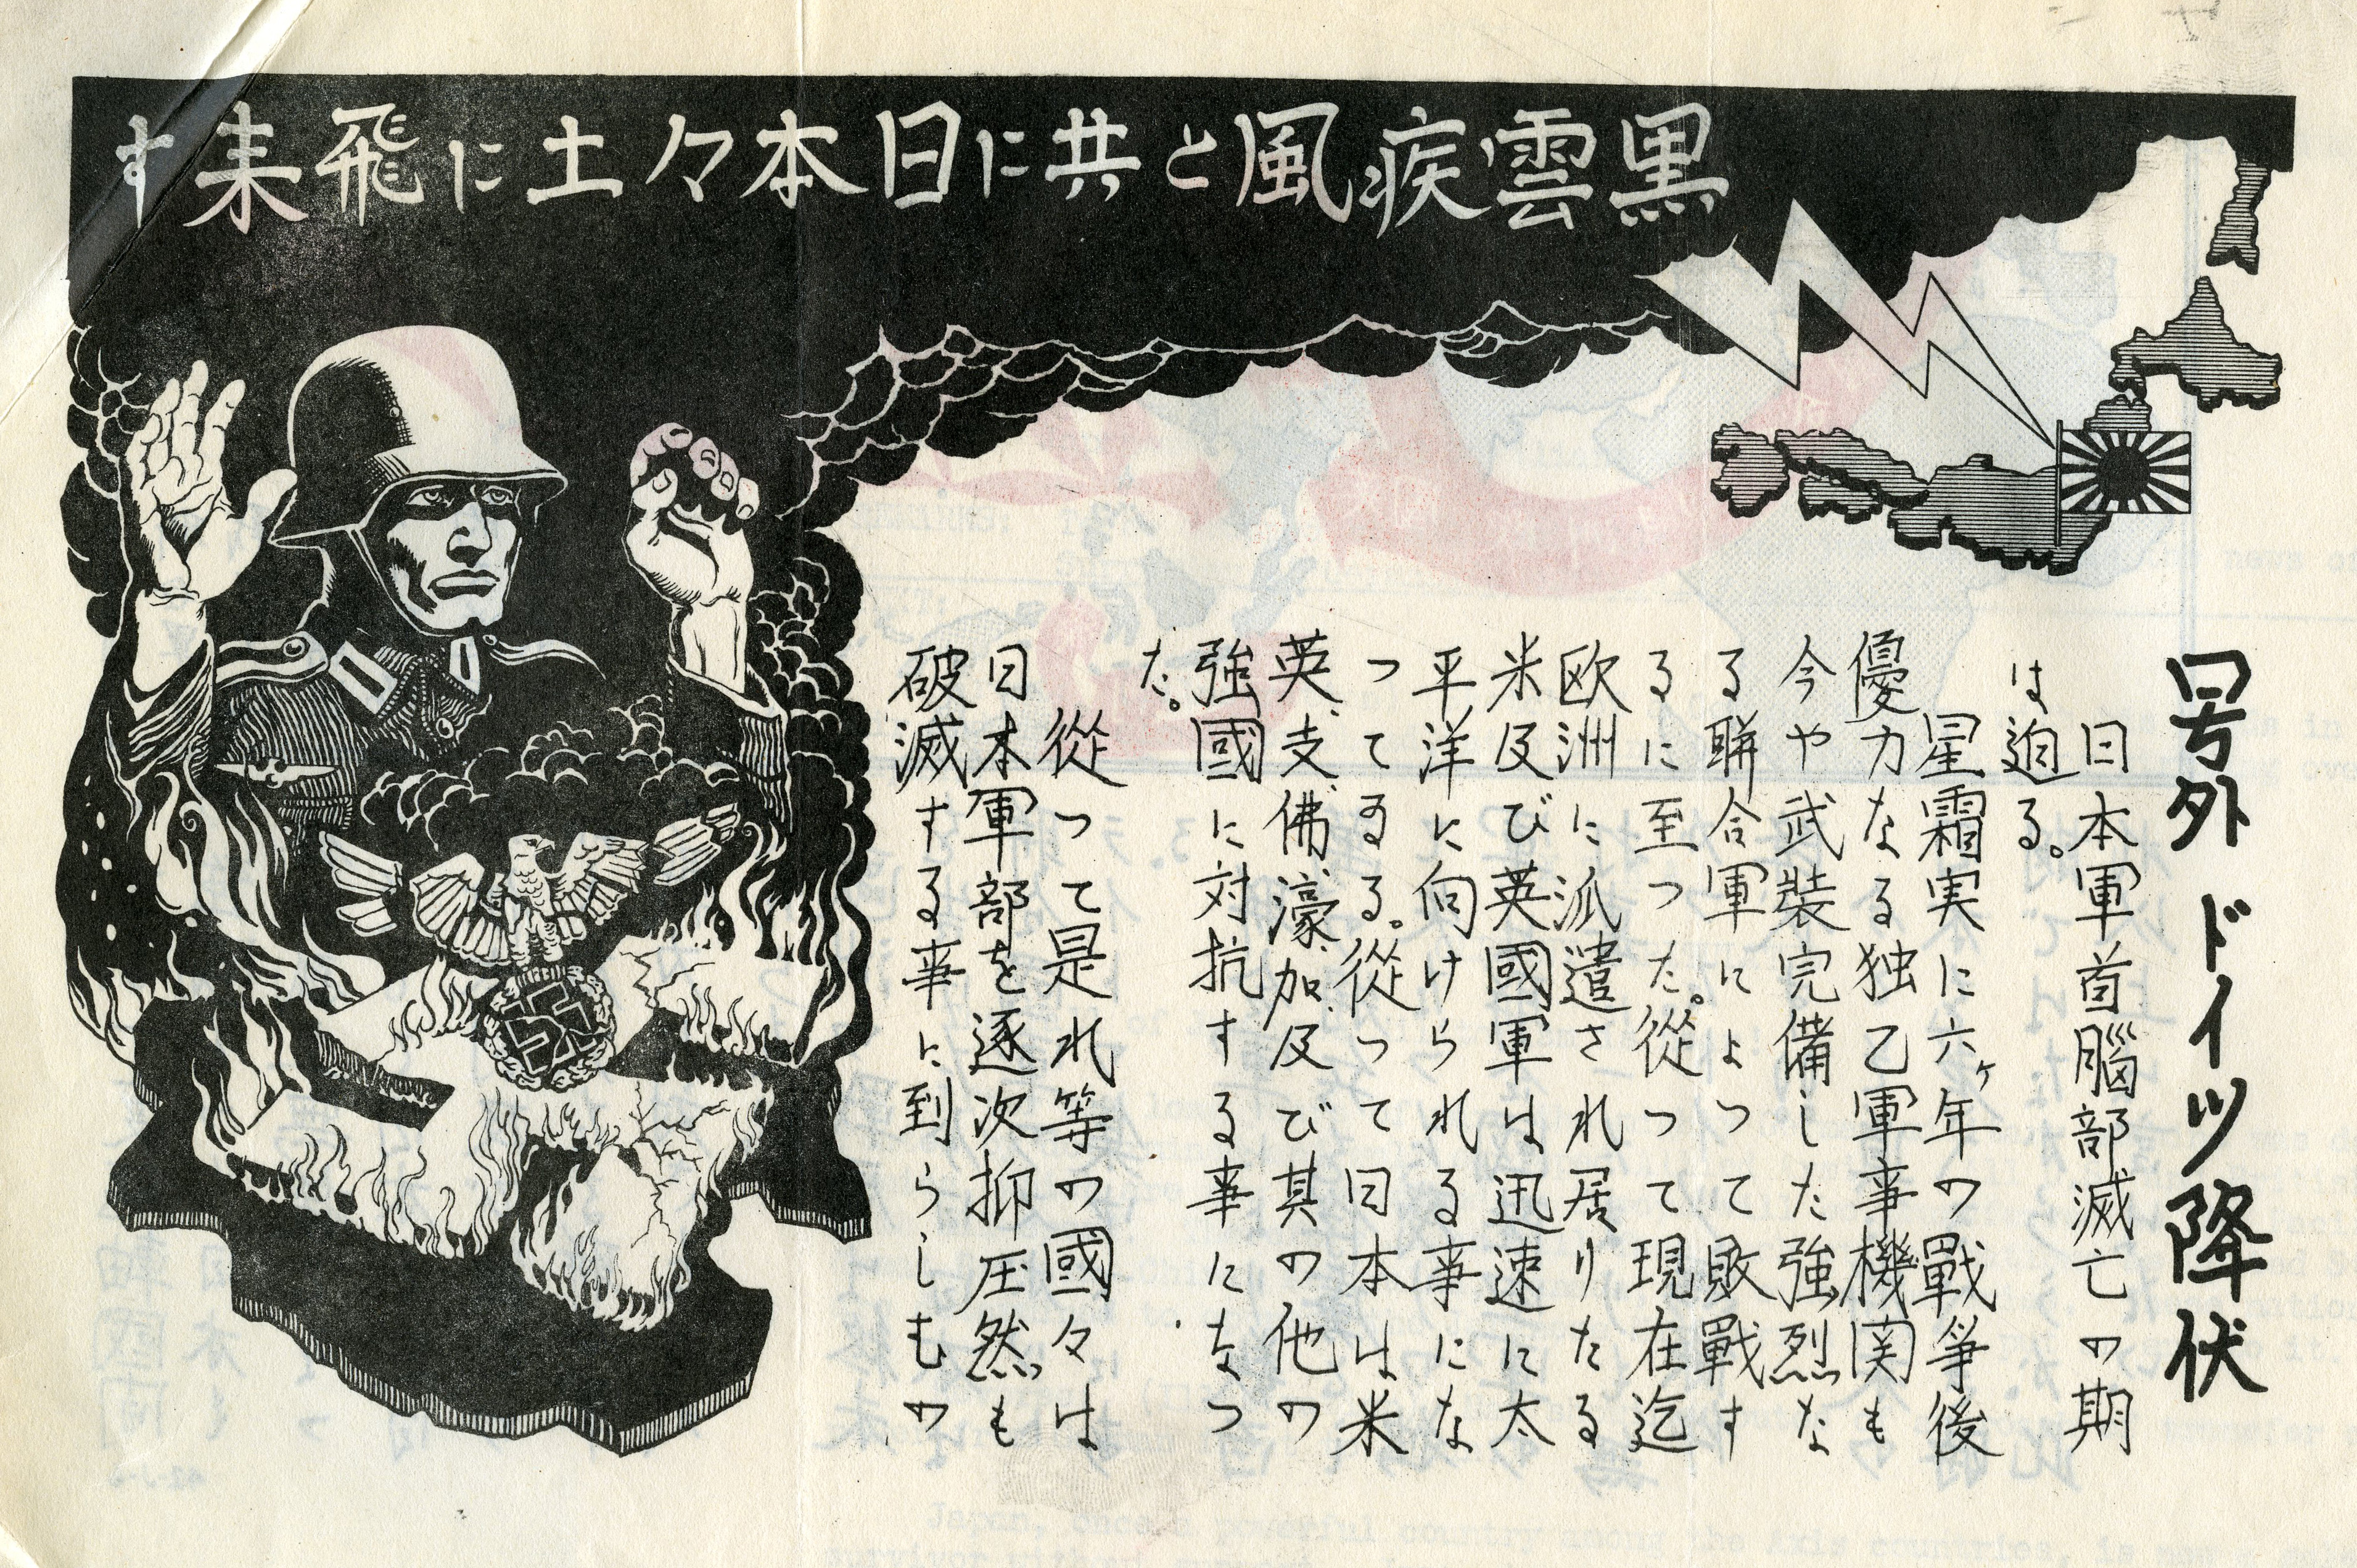 黒雲疾風と共に日本々土に飛来す
号外 ドイツ降伏
日本軍首脳部滅亡の期
は迫る。
星霜実に六ヶ年の戰爭後
優力なる独乙軍事機関も
今や武裝完備した強烈な
る聯合軍によつて敗戰す
るに至つた。從つて現在迄
欧洲に派遣され居りたる
米及び英國軍は迅速に太
平洋に向けられる事にな
つてゐる。從つて日本は米
英、支、佛、濠、加、及び其の他の
強國に対抗する事になつ
た。
從つて是れ等の國々は
日本軍部を逐次抑圧然も
破滅する事に到らしむの